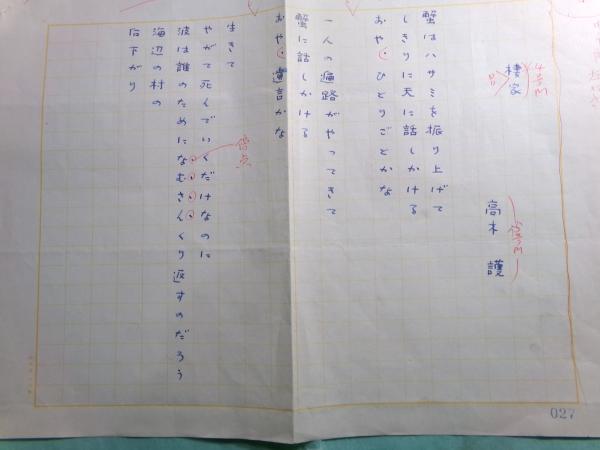 棲家
4号M
高木 護
蟹はハサミを振り上げて
しきりに天に話しかける
おや、ひとりごとかな
一人の遍路がやってきて
蟹に話しかける
おや、遺言かな
生きて
やがて死んでいくだけなのに
波は誰のためになむさんくり返すのだろう
傍点
海辺の村の
昼下がり
027